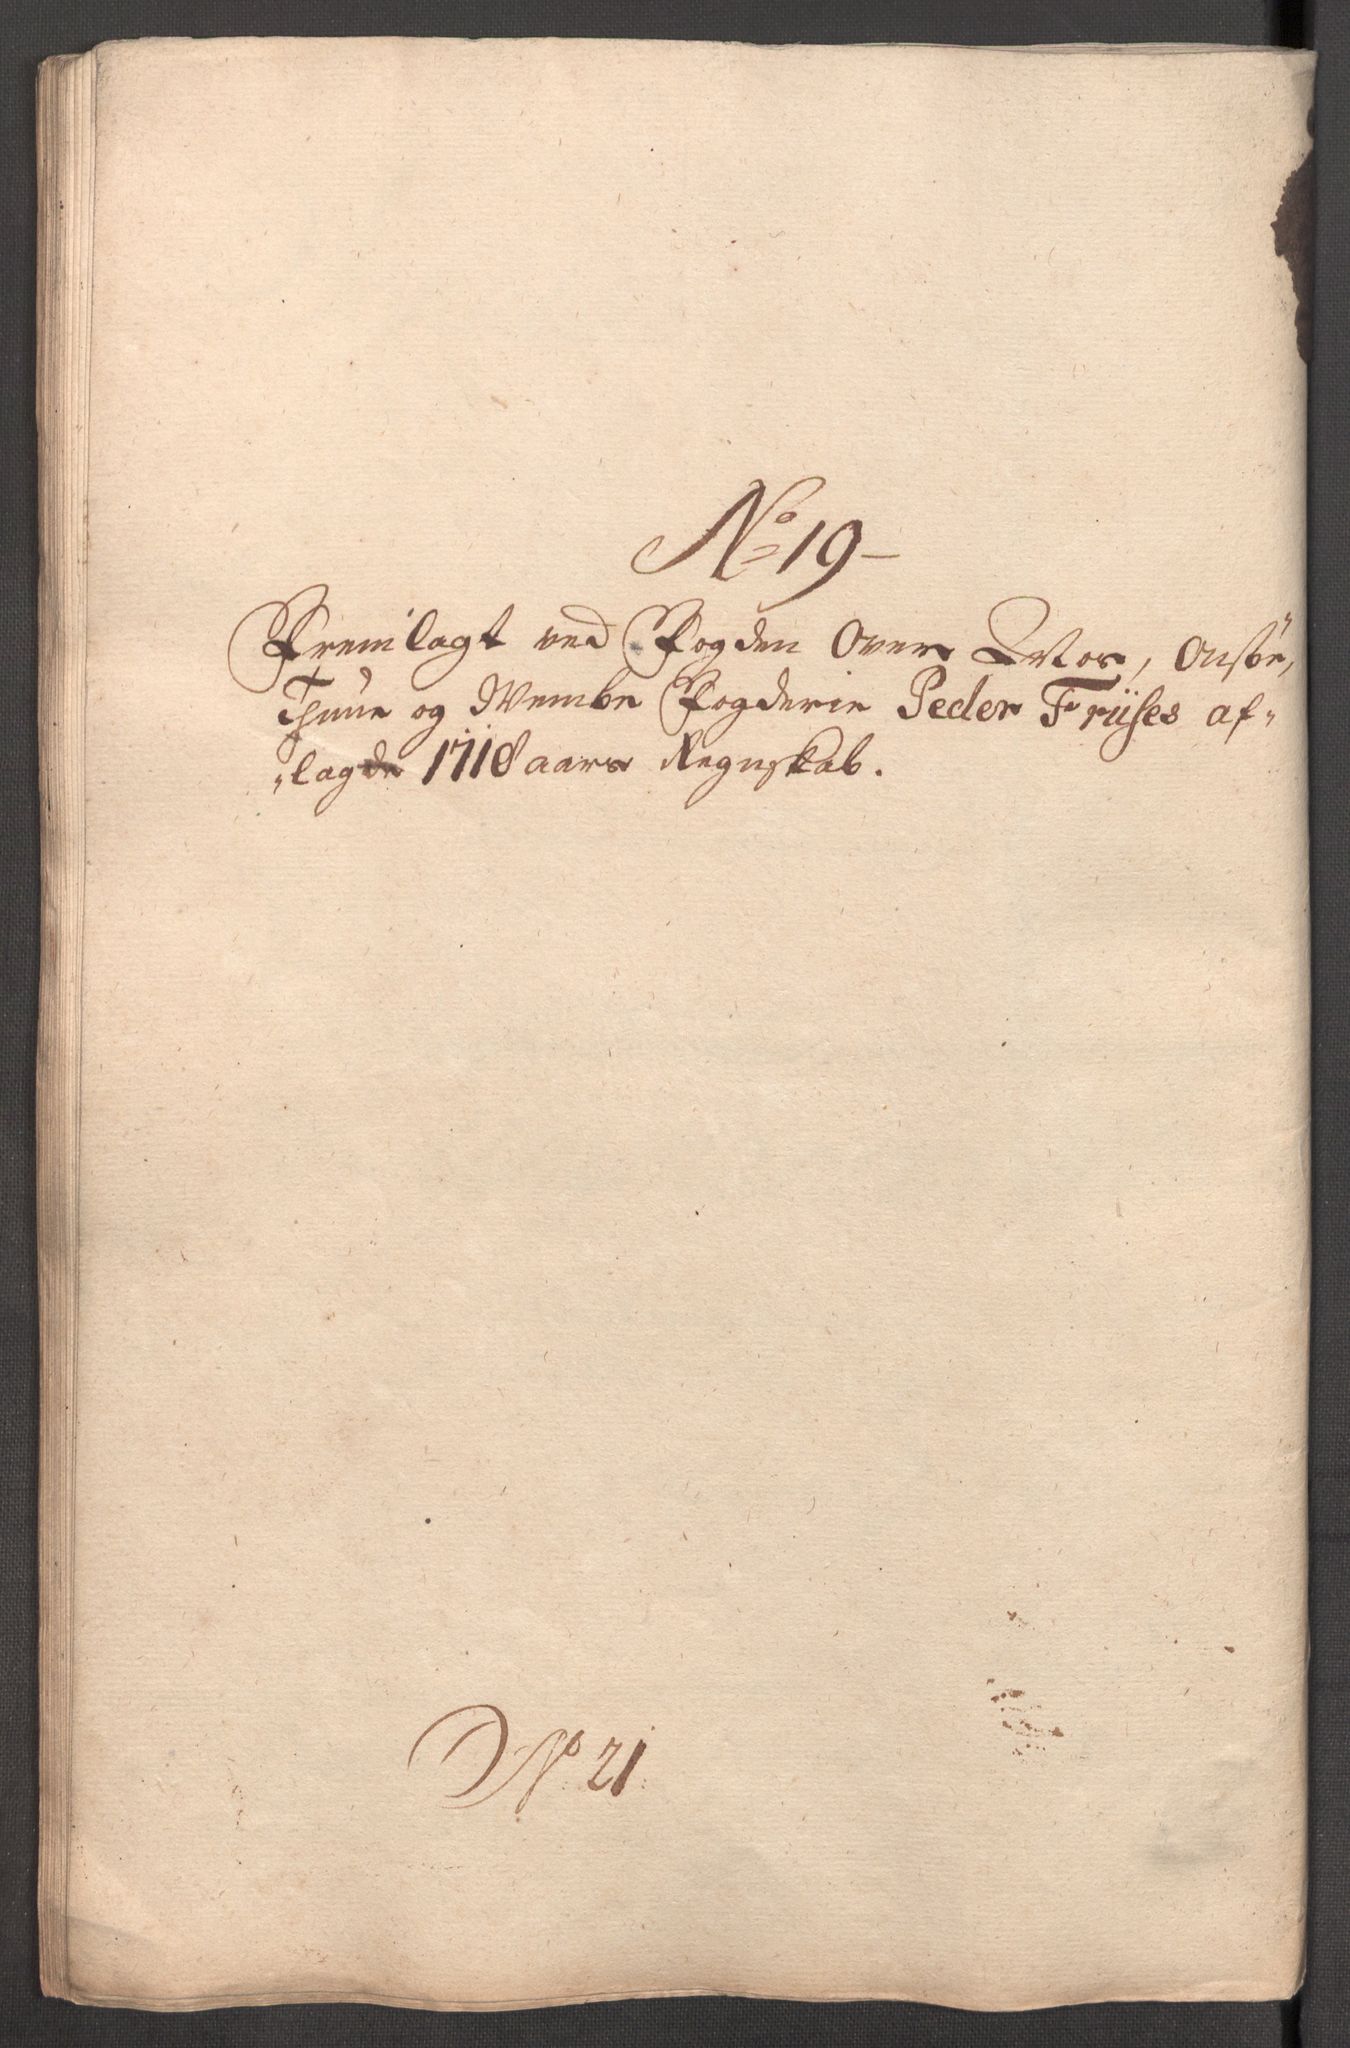 No 19
Fremlagt ved Fogden Over Moss, Onsöe,
Thune og Wembe Fogderie Peder Friises af-
lagde 1718 aars Regnskab.
No 21